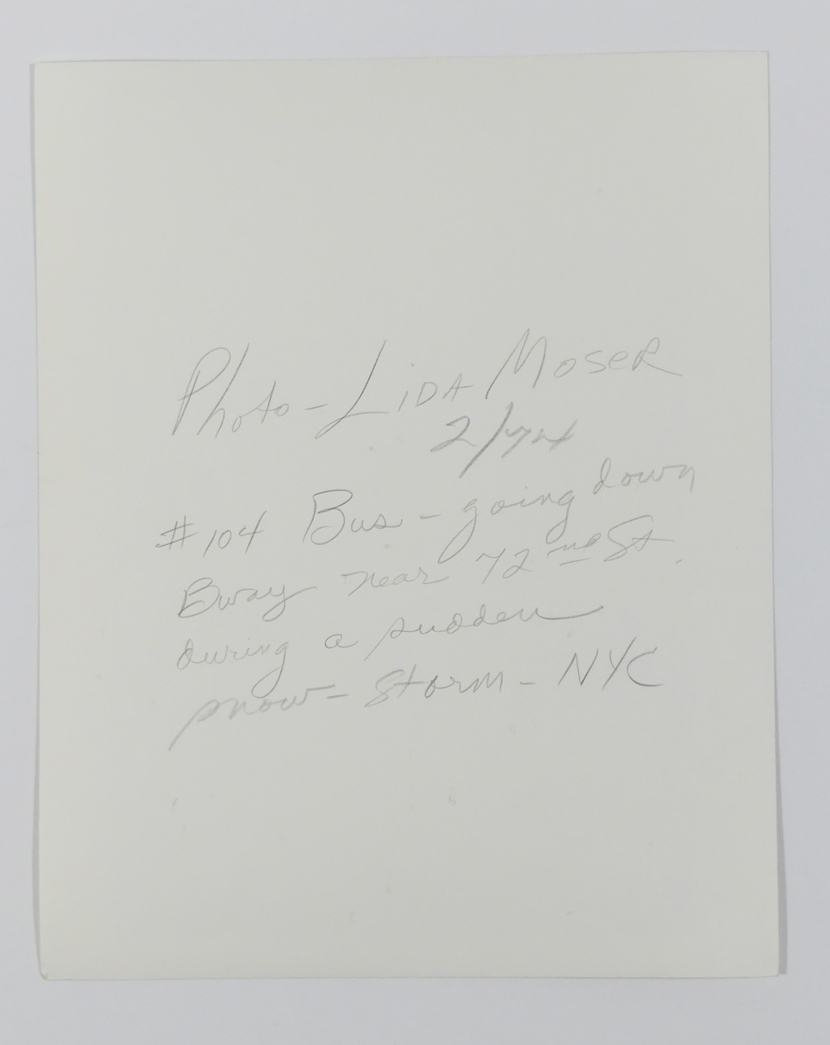 Photo - LIDA MOSER
2/74
#104 Bus - going down
Bway near 72nd St.
during a sudden
snow-storm - NYC